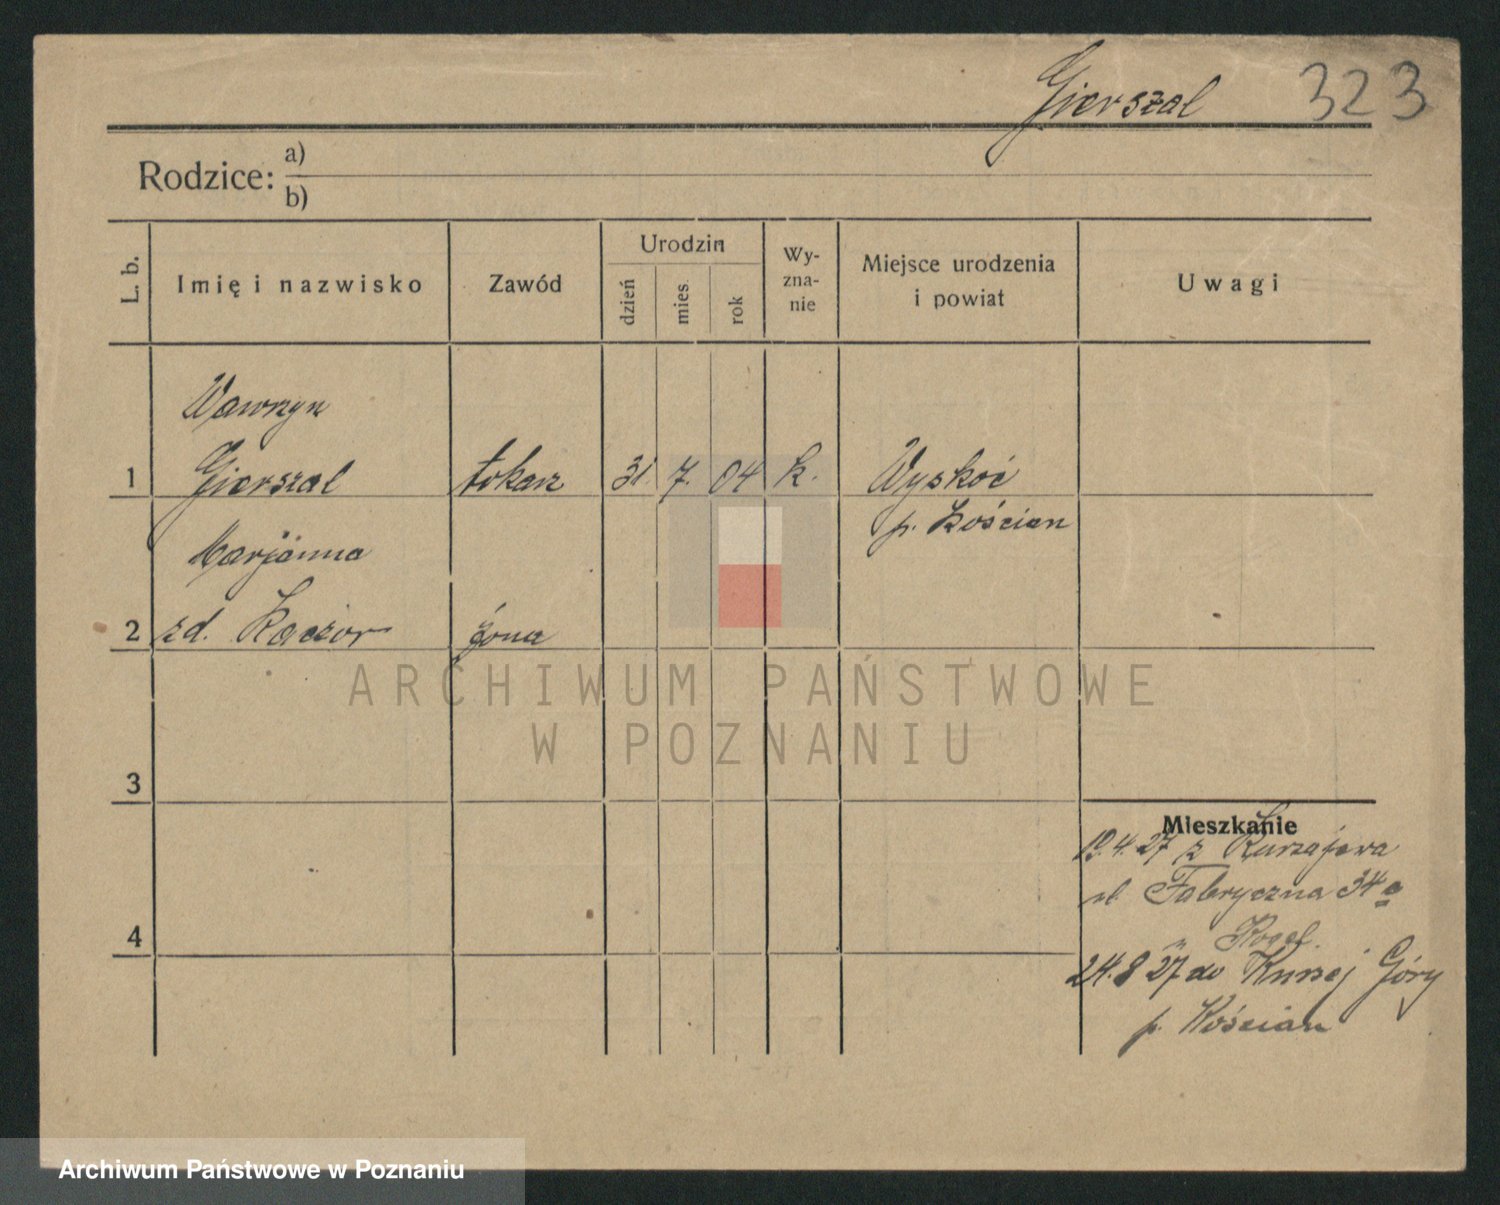 Gierszal 323
Rodzice: a)
b)
L. b.
Imię i nazwisko
Zawód
Urodzin
dzień
mies.
rok
Wy-
zna-
nie
Miejsce urodzenia
i powiat
Uwagi
Wawrzyn
1 Gierszal tokarz 31. 7. 04 k. Wyskoć
p. Kościan
Marjanna
2 zd. Kaczor żona
3
4
Mieszkanie
19.4.27 z Kurzajewa
ul. Fabryczna 34a
24.8 27 do Kurzej Góry
p. Kościan
ARCHIWUM PAŃSTWOWE
W POZNANIU
Archiwum Państwowe w Poznaniu